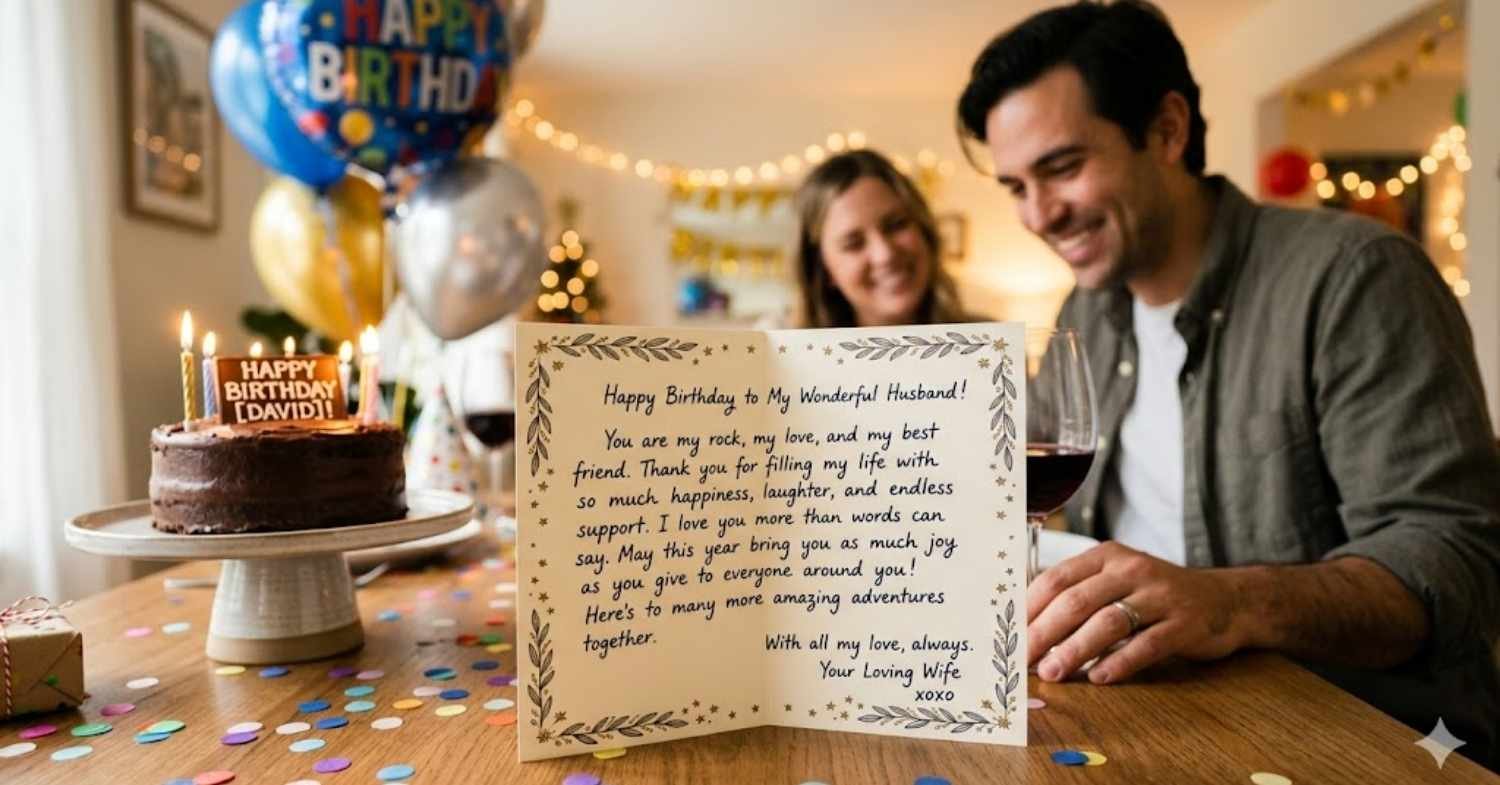 HAPPY
BIRTHDA
HAPPY
BIRTHDAY
[DAVID]!
Happy Birthday to My Wonderful Husband!
You are my rock, my love, and my best
friend. Thank you for filling my life with
so much happiness, laughter, and endless
support. I love you more than words can
say. May this year bring you as much joy
as you give to everyone around you!
Here's to many more amazing adventures
together.
With all my love, always.
Your Loving Wife
xoxo